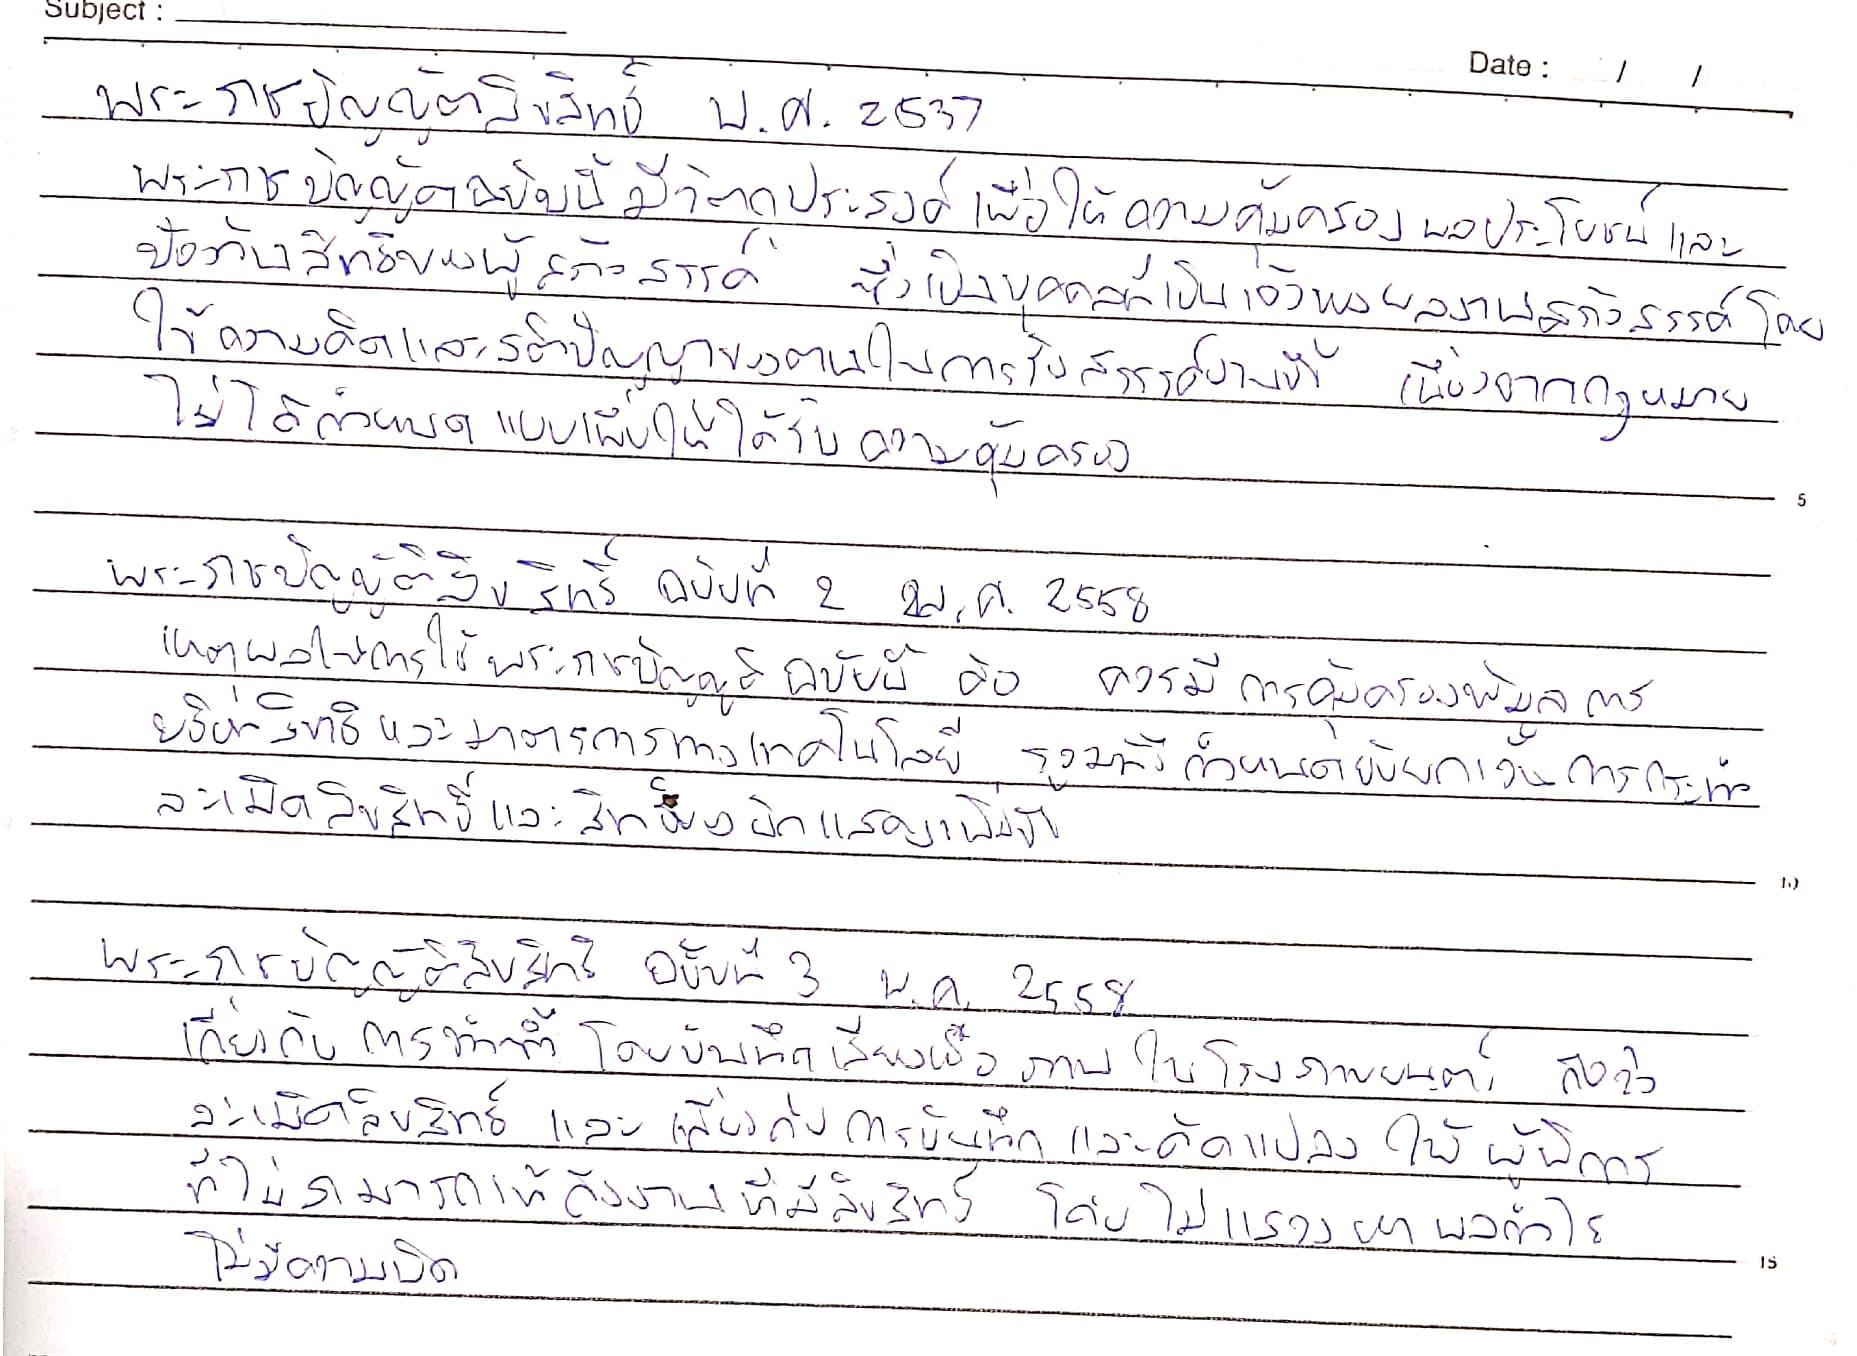 Subject :
Date : / /
พระราชบัญญัติลิขสิทธิ์ พ.ศ. 2537
พระราชบัญญัติฉบับนี้ มีวัตถุประสงค์ เพื่อให้ ความคุ้มครอง ผลประโยชน์ และ
ป้องกัน สิทธิของผู้สร้างสรรค์ ซึ่งเป็นบุคคลที่เป็นเจ้าของผลงานสร้างสรรค์ โดย
ใช้ ความคิดและสติปัญญาของตนในการสร้างสรรค์งาน เนื่องจากกฎหมาย
ไม่ได้กำหนด แบบเพื่อให้ได้รับ ความคุ้มครอง
5
พระราชบัญญัติลิขสิทธิ์ ฉบับที่ 2 พ.ศ. 2558
เหตุผลในการใช้ พระราชบัญญัติ ฉบับนี้ คือ ควรมี การคุ้มครองข้อมูล การ
บริหารสิทธิ และ มาตรการทางเทคโนโลยี รวมทั้ง กำหนดข้อยกเว้น การกระทำ
ละเมิด ลิขสิทธิ์ และ สิทธิของ นักแสดงเพิ่มขึ้น
10
พระราชบัญญัติลิขสิทธิ์ ฉบับที่ 3 พ.ศ. 2558
เกี่ยวกับ การทำซ้ำ โดยบันทึก เสียงหรือ ภาพ ในโรงภาพยนตร์ ถือว่า
ละเมิดลิขสิทธิ์ และ เกี่ยวกับ การบันทึก และดัดแปลง ให้ ผู้พิการ
ที่ไม่สามารถเข้าถึงงาน ที่มีลิขสิทธิ์ โดย ไม่แสวงหา ผลกำไร
ไม่มีความผิด
15